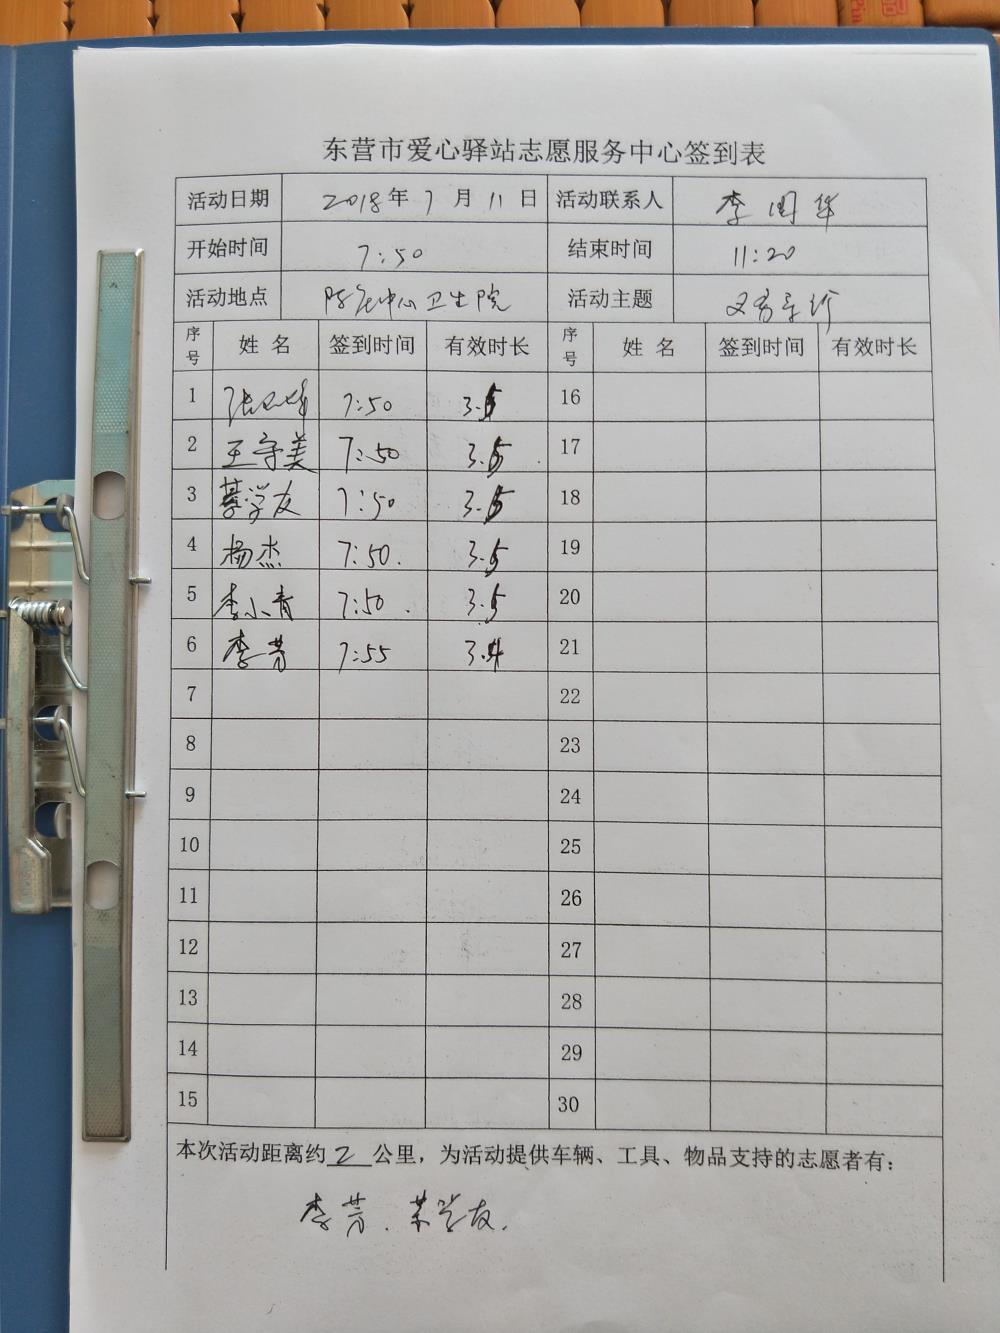 东营市爱心驿站志愿服务中心签到表
活动日期 2018年7月11日 活动联系人 李国华
开始时间 7:50 结束时间 11:20
活动地点 中心卫生院 活动主题 义务导诊
序号 姓名 签到时间 有效时长 序号 姓名 签到时间 有效时长
1 7:50 3.5 16
2 王守美 7:50 3.5 17
3 綦学友 7:50 3.5 18
4 杨杰 7:50. 3.5 19
5 李小青 7:50. 3.5 20
6 李芳 7:55 3.4 21
7 22
8 23
9 24
10 25
11 26
12 27
13 28
14 29
15 30
本次活动距离约2公里，为活动提供车辆、工具、物品支持的志愿者有：
李芳. 綦学友.